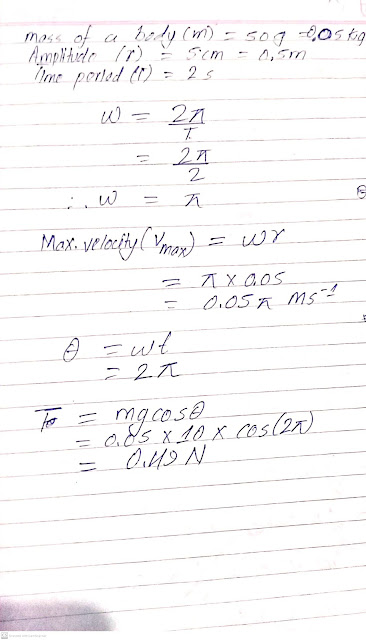 mass of a body (m) = 50g = 0.05 kg
Amplitude (r) = 5cm = 0.5m
Time period (T) = 2 s
W = 2π
T
= 2π
2
∴ W = π
Max. velocity (Vmax) = wr
= π x 0.05
= 0.05 π ms⁻¹
θ = wt
= 2π
= mg cosθ
= 0.05 x 10 x cos(2π)
= 0.49 N